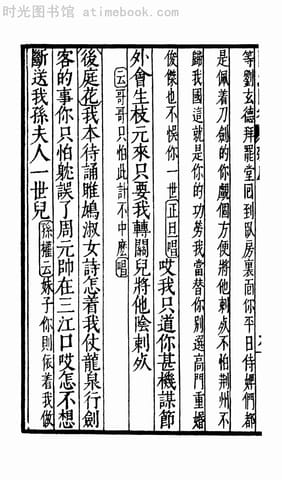 时光图书馆 atimebook.com
等劉玄德拜罷堂囘到臥房裏面你平日侍婢們都
是佩着刀劍的你覷個方便將他刺死不怕荆州不
歸我國這就是你的功勞我當替你別選高門重婚
俊傑也不悞你一世正旦唱哎我只道你甚機謀節
外會生枝元來只要我轉關兒將他陰刺死
云哥哥只怕此計不中麽唱
後庭花我本待誦雎鳩淑女詩怎着我仗龍泉行劍
客的事你只怕躭誤了周元帥在三江口哎怎不想
斷送我孫夫人一世兒孫權云妹子你則依着我做